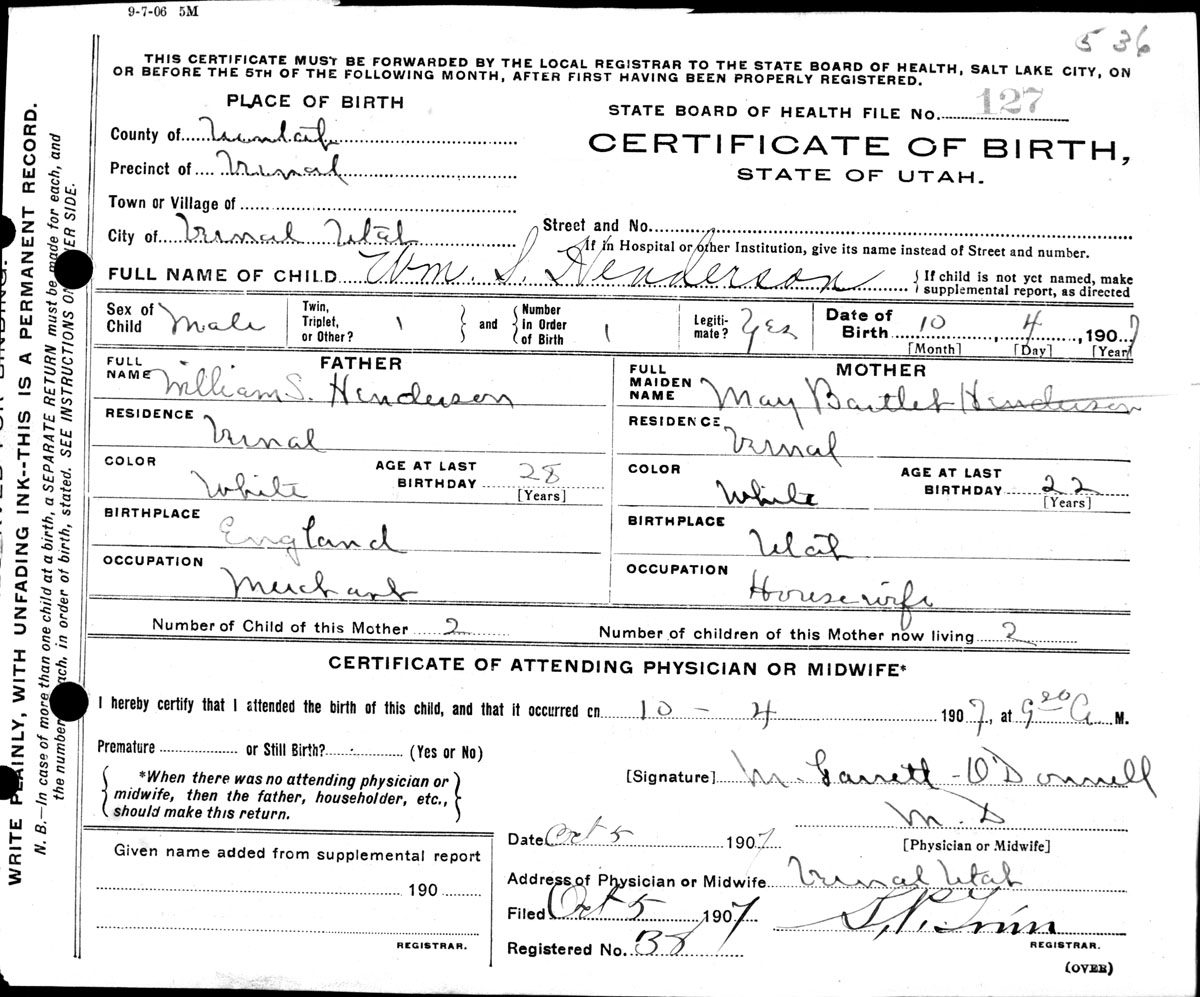 9-7-06 5M
5 36
THIS CERTIFICATE MUST BE FORWARDED BY THE LOCAL REGISTRAR TO THE STATE BOARD OF HEALTH, SALT LAKE CITY, ON
OR BEFORE THE 5TH OF THE FOLLOWING MONTH, AFTER FIRST HAVING BEEN PROPERLY REGISTERED.
PLACE OF BIRTH
STATE BOARD OF HEALTH FILE No. 127
CERTIFICATE OF BIRTH,
STATE OF UTAH.
County of Uintah
Precinct of Vernal
Town or Village of
City of Vernal Utah
Street and No.
If in Hospital or other Institution, give its name instead of Street and number.
FULL NAME OF CHILD Wm. S. Henderson
{ If child is not yet named, make
supplemental report, as directed
Sex of Child Male
Twin, Triplet, or Other? 1 } and { Number in Order of Birth 1
Legitimate? Yes
Date of Birth 10, 4, 1907
[Month] [Day] [Year]
FATHER
FULL NAME William S. Henderson
RESIDENCE Vernal
COLOR White AGE AT LAST BIRTHDAY 28
[Years]
BIRTHPLACE England
OCCUPATION Merchant
MOTHER
FULL MAIDEN NAME May Bartlet Henderson
RESIDENCE Vernal
COLOR White AGE AT LAST BIRTHDAY 22
[Years]
BIRTHPLACE Utah
OCCUPATION Housewife
Number of Child of this Mother 2 Number of children of this Mother now living 2
CERTIFICATE OF ATTENDING PHYSICIAN OR MIDWIFE*
I hereby certify that I attended the birth of this child, and that it occurred on 10 - 4 1907, at 9 20 A M.
Premature or Still Birth? (Yes or No)
{ *When there was no attending physician or
midwife, then the father, householder, etc.,
should make this return. }
[Signature] M. Garrett - O'Donnell
M. D
[Physician or Midwife]
Date Oct 5 1907
Address of Physician or Midwife Vernal Utah
Filed Oct 5 1907
Registered No. 38
REGISTRAR.
(OVER)
Given name added from supplemental report
190
REGISTRAR.
WRITE PLAINLY, WITH UNFADING INK--THIS IS A PERMANENT RECORD.
N. B.—In case of more than one child at a birth, a SEPARATE RETURN must be made for each, and
the number each, in order of birth, stated. SEE INSTRUCTIONS ON SIDE.